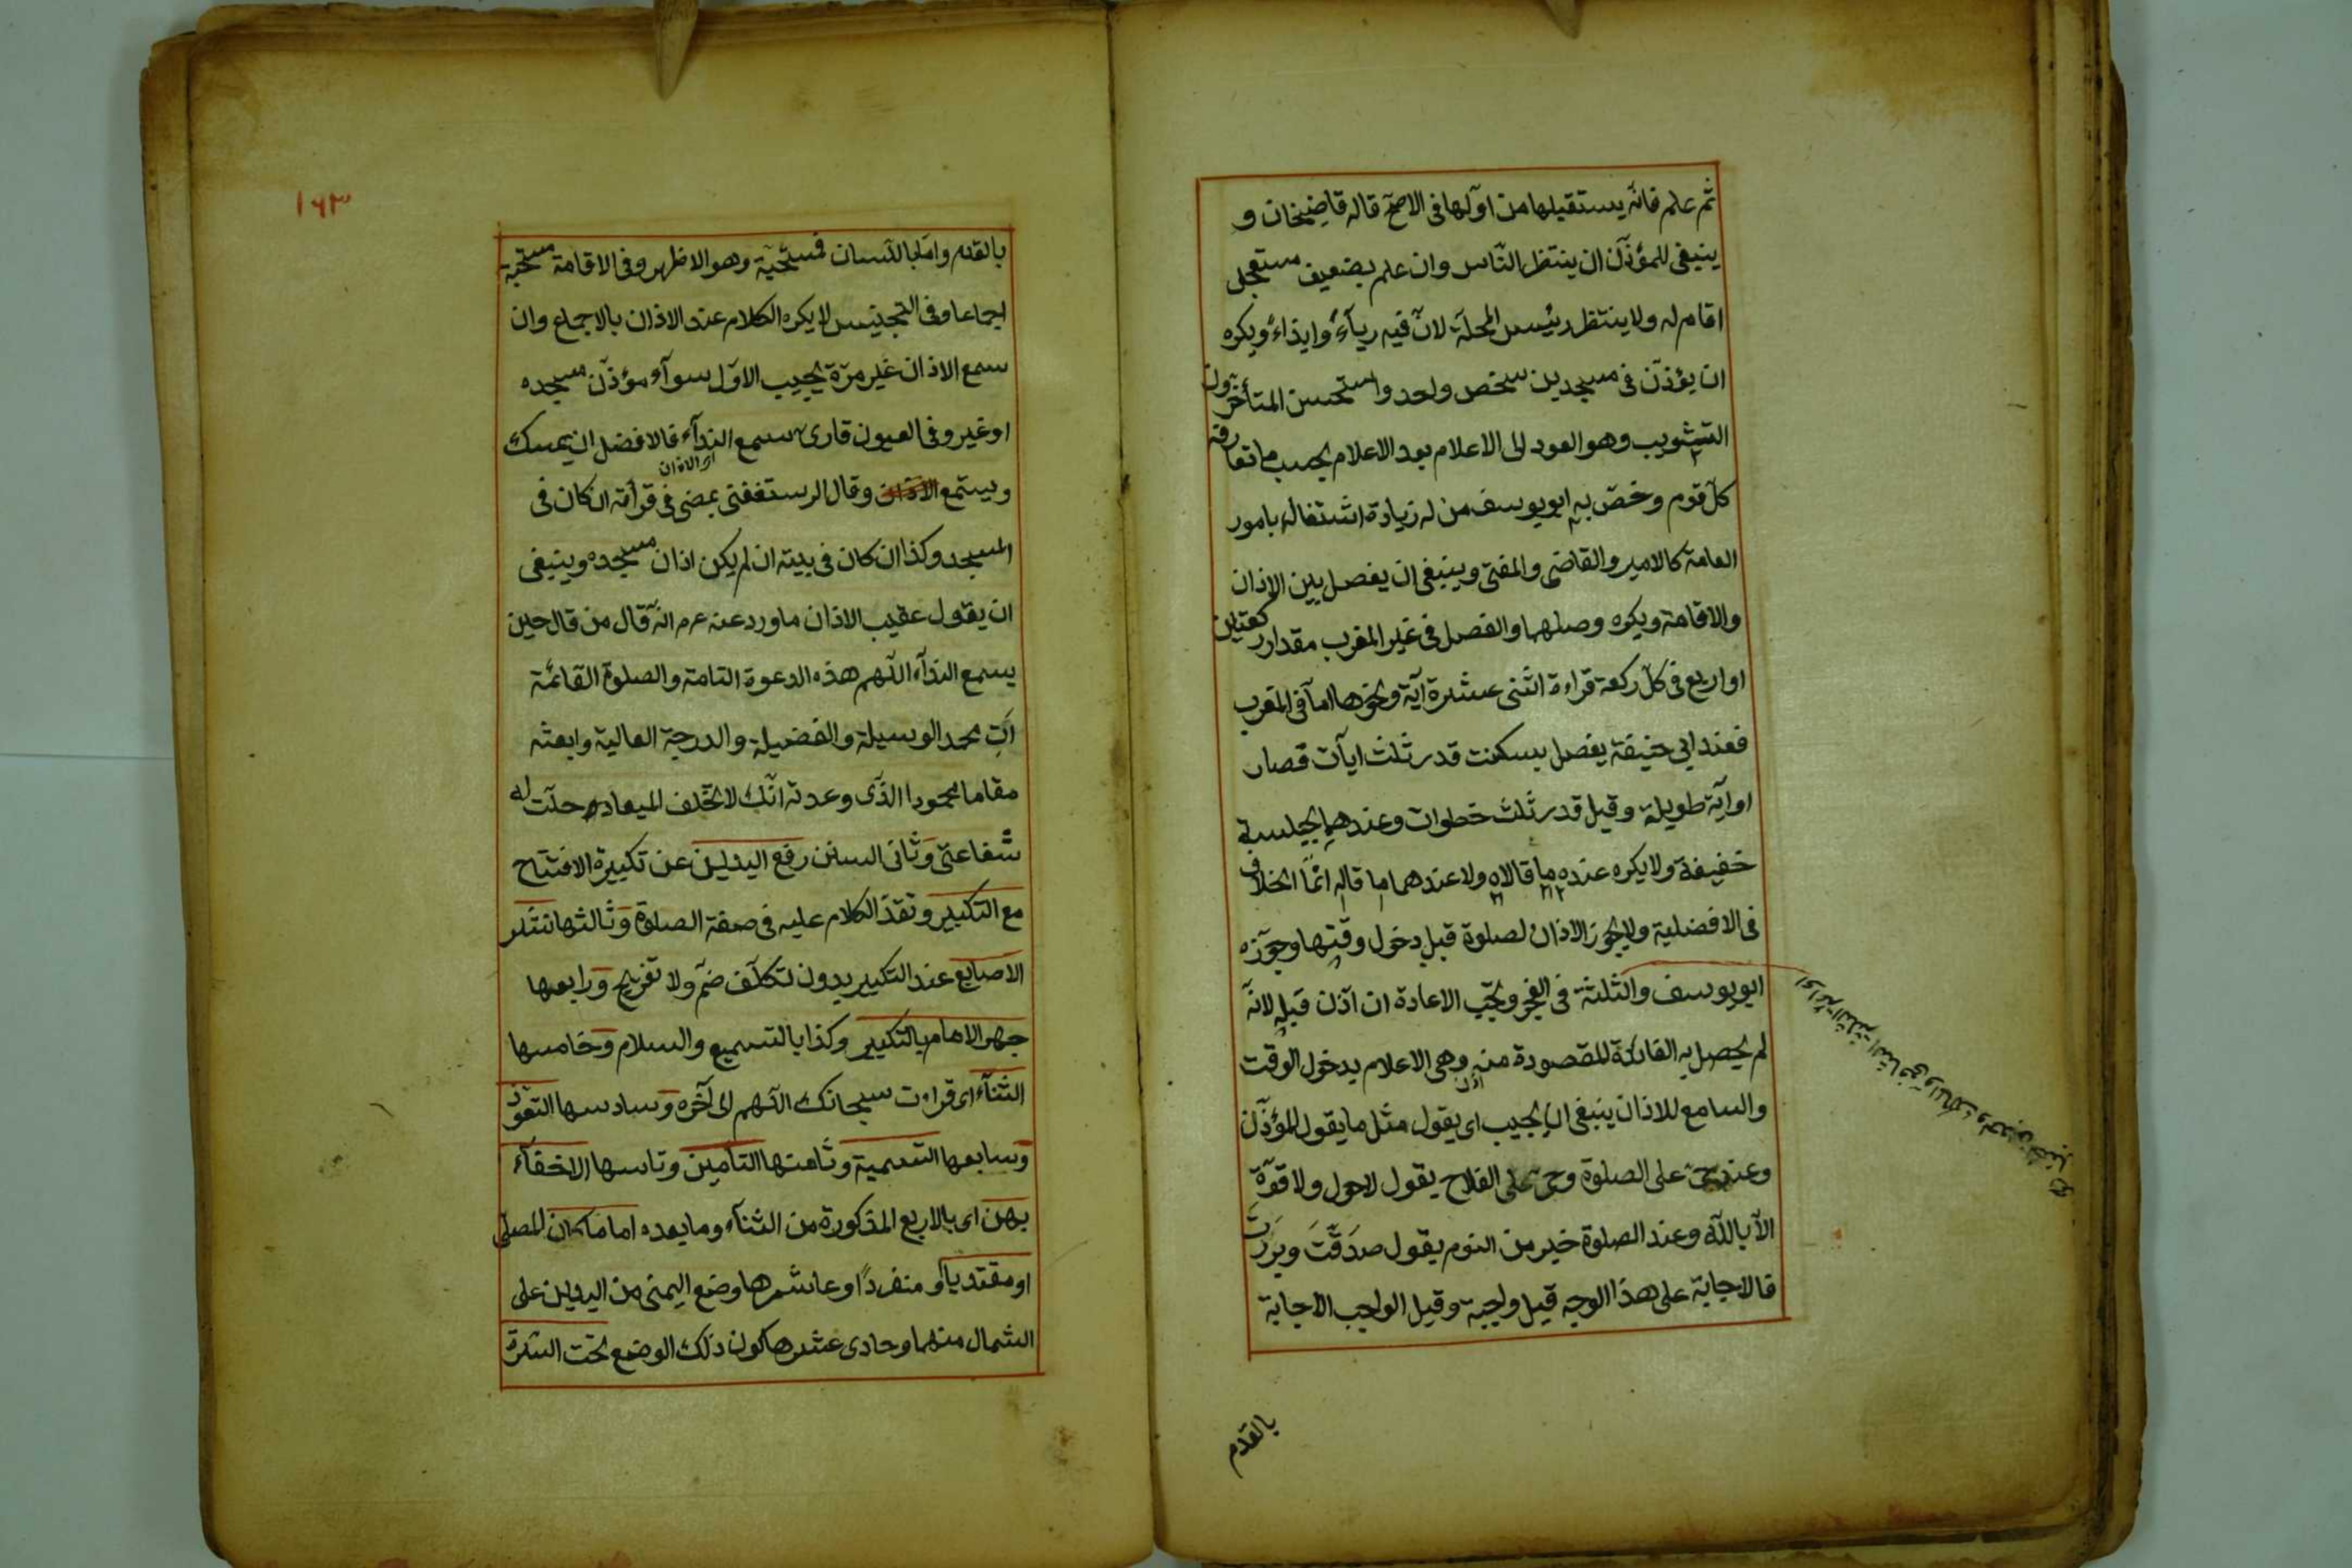 ثم علم فانه يستقبلها من اولها فى الاصح قاله قاضيخان و
ينبغى للمؤذن ان ينتظر الناس وان علم بضعيف مستعجل
اقام له ولا ينتظر رئيس المحلة لان فيه رياء وايذاء ويكره
ان يؤذن فى مسجدين شخص واحد واستحسن المتأخرون
التثويب وهو العود الى الاعلام بعد الاعلام بحسب ما تعارفه
كل قوم وخص به ابو يوسف من له زيادة اشتغال بامور
العامة كالامير والقاضى والمفتى وينبغى ان يفصل بين الاذان
والاقامة ويكره وصلهما والفصل فى غير المغرب مقدار ركعتين
او اربع فى كل ركعة قراءة اثنى عشرة آية ونحوها اما فى المغرب
فعند ابى حنيفة يفصل بسكنت قدر ثلث ايات قصار
او آية طويلة وقيل قدر ثلث خطوات وعندهما بجلسة
خفيفة ولا يكره عنده ما قالاه ولا عندهما ما قاله انما الخلاف
فى الافضلية ولا يجوز الاذان لصلوة قبل دخول وقتها وجوزه
ابو يوسف والثلثة فى الفجر ويجب الاعادة ان اذن قبله لانه
لم يحصل به الفائدة المقصودة منه وهى الاعلام بدخول الوقت
والسامع للاذان ينبغى ان يجيب اى يقول مثل ما يقول المؤذن
وعند حى على الصلوة وحى على الفلاح يقول لا حول ولا قوة
الا بالله وعند الصلوة خير من النوم يقول صدقت وبررت
فالاجابة على هذا الوجه قيل واجبة وقيل الواجب الاجابة
بالقدم
اى الائمة الثلثة الشافعى والمالك واحمد بن حنبل
١٦٣
بالقدم واما باللسان فمستحبة وهو الاظهر وفى الاقامة مستحبة
اجماعا وفى التجنيس لا يكره الكلام عند الاذان بالاجماع وان
سمع الاذان غير مرة يجيب الاول سواء مؤذن مسجده
او غيره وفى العيون قارئ سمع النداء فالافضل ان يمسك
اى الاذان
ويستمع الاذان وقال الرستغفنى يمضى فى قرأته ان كان فى
المسجد وكذا ان كان فى بيته ان لم يكن اذان مسجده وينبغى
ان يقول عقيب الاذان ما ورد عنه عم انه قال من قال حين
يسمع النداء اللهم هذه الدعوة التامة والصلوة القائمة
آت محمد الوسيلة والفضيلة والدرجة العالية وابعثه
مقاما محمودا الذى وعدته انك لا تخلف الميعاد حلت له
شفاعتى وثانى السنن رفع اليدين عن تكبيرة الافتتاح
مع التكبير وتقد الكلام عليه فى صفة الصلوة وثالثها نشر
الاصابع عند التكبير بدون تكلف ضم ولا تفريج ورابعها
جهر الامام بالتكبير وكذا بالتسميع والسلام وخامسها
الثناء اى قراءت سبحانك اللهم الى آخره وسادسها التعوذ
وسابعها التسمية وثامنها التأمين وتاسها الاخفاء
بهن اى بالاربع المذكورة من الثناء وما بعده اماما كان المصلى
او مقتديا او منفردا وعاشرها وضع اليمنى من اليدين على
الشمال منهما وحادى عشرها كون ذلك الوضع تحت السرة